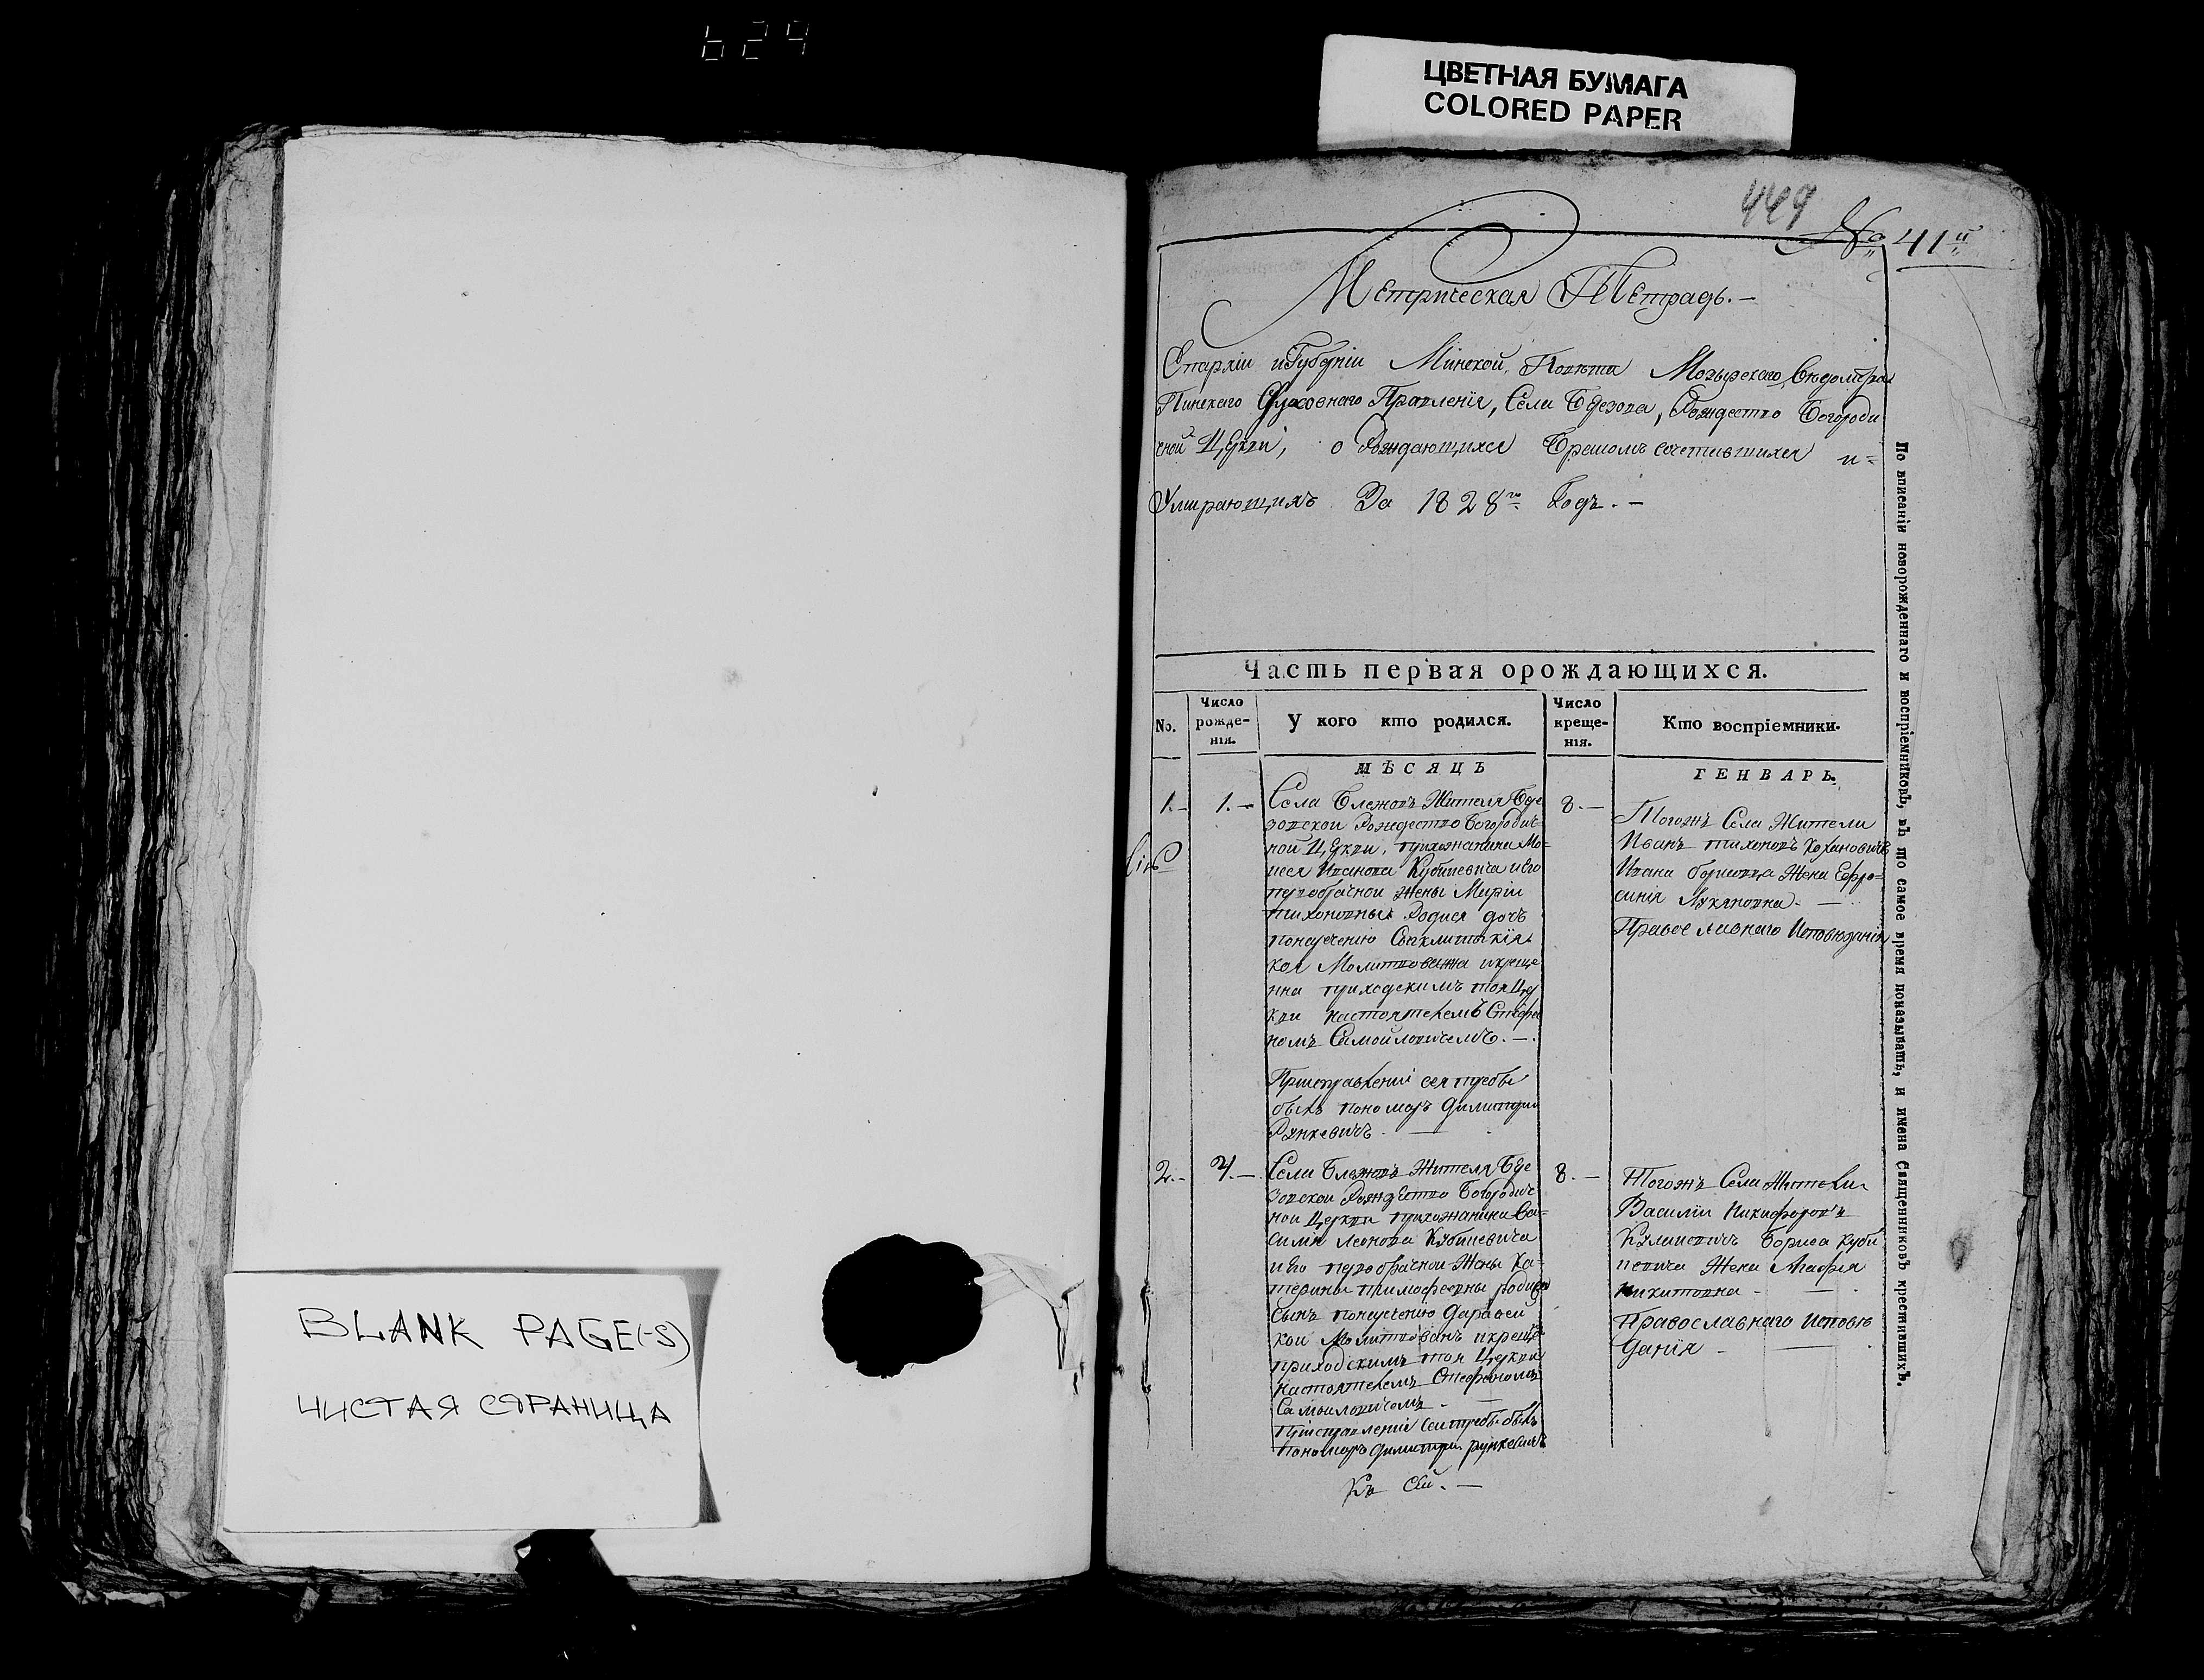 624
ЦВЕТНАЯ БУМАГА
COLORED PAPER
449
№ 41й
Метрическая Тетрадь.—
Епархіи и Губерніи Минской, Повета Мозырскаго, Ведомства
Пинскаго Духовнаго Правленія, Села Березова, Рождество Богороди
чной Церкви, о Рождающихся Бракомъ сочетавшихся и=
Умирающихъ За 1828го Годъ.—
Часть первая орождающихся.
No. Число рожде- нія. У кого кто родился. Число креще- нія. Кто воспріемники.
МѢСЯЦЪ ГЕНВАРЬ.
1.— 1.—
Села Бежовъ Жителя Бере
зовской Рождество Богородич
ной Церкви, прихожанина Мо=
исея Иванова Кубицевича и Его
первобрачной Жены Маріи
тихоновны Родися дочь
понаречению Сигклитикія
коя Молитвованна и креще
нна приходскимъ тоя Цер
кви настоятелемъ Стефа
номъ Самойловичемъ.—.
Приисправлении сея требы
былъ пономаръ Димитрий
Рункевичъ.—
8.—
Тогожъ Села Жители
Иванъ тихоновъ Кохановичъ
Ивана борисовца Жена Ефро=
синія Лукяновна.—
Православнаго Исповѣданія
2.— 4.—
Села Жителя Бере
зовской Рождество Богородич
ной Церкви прихожанина Ва=
силія Леонова Кубицевича
и Его первобрачной Жены Ка=
терины тимофеевны родися
Сынъ понаречению
кои Молитвованъ и креще
приходскимъ тоя Церкви
настоятелемъ Стефаномъ
Самойловичемъ.—
Приисправлении сеи требы былъ
пономаръ Димитрий рункевичъ
8.—
Тогожъ Села Жители
Василій Никифоровъ
Бориса Куби
цевича Жена Агафія
никитовна.—
Православнаго Исповѣ
данія.—
Къ сей.—
По вписаніи новорожденнаго и воспріемниковъ, въ то самое время показывать, и имена Священниковъ крестившихъ.
BLANK PAGE(-S)
ЧИСТАЯ СТРАНИЦА